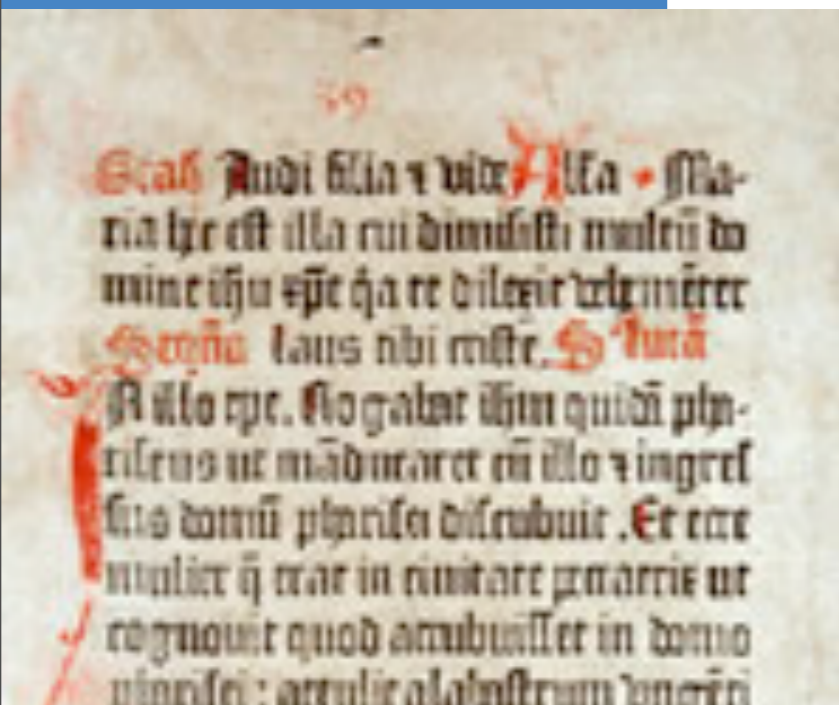 Audi filia ⁊ vide Alla • Ma-
ria hec est illa cui dimisisti multū do
mine ihu xpe q̄a te dilexit vehemēter
Sequēn laus tibi criste. S Lucā
N illo tpe. Rogabat ihm quidā pha-
riseus ut māducaret cū illo ⁊ ingres
sus domū pharisei discubuit. Et ecce
mulier q̄ erat in ciuitate peccatrix ut
cognouit quod accubuisset in domo
pharisei : attulit alabastrum vngēti